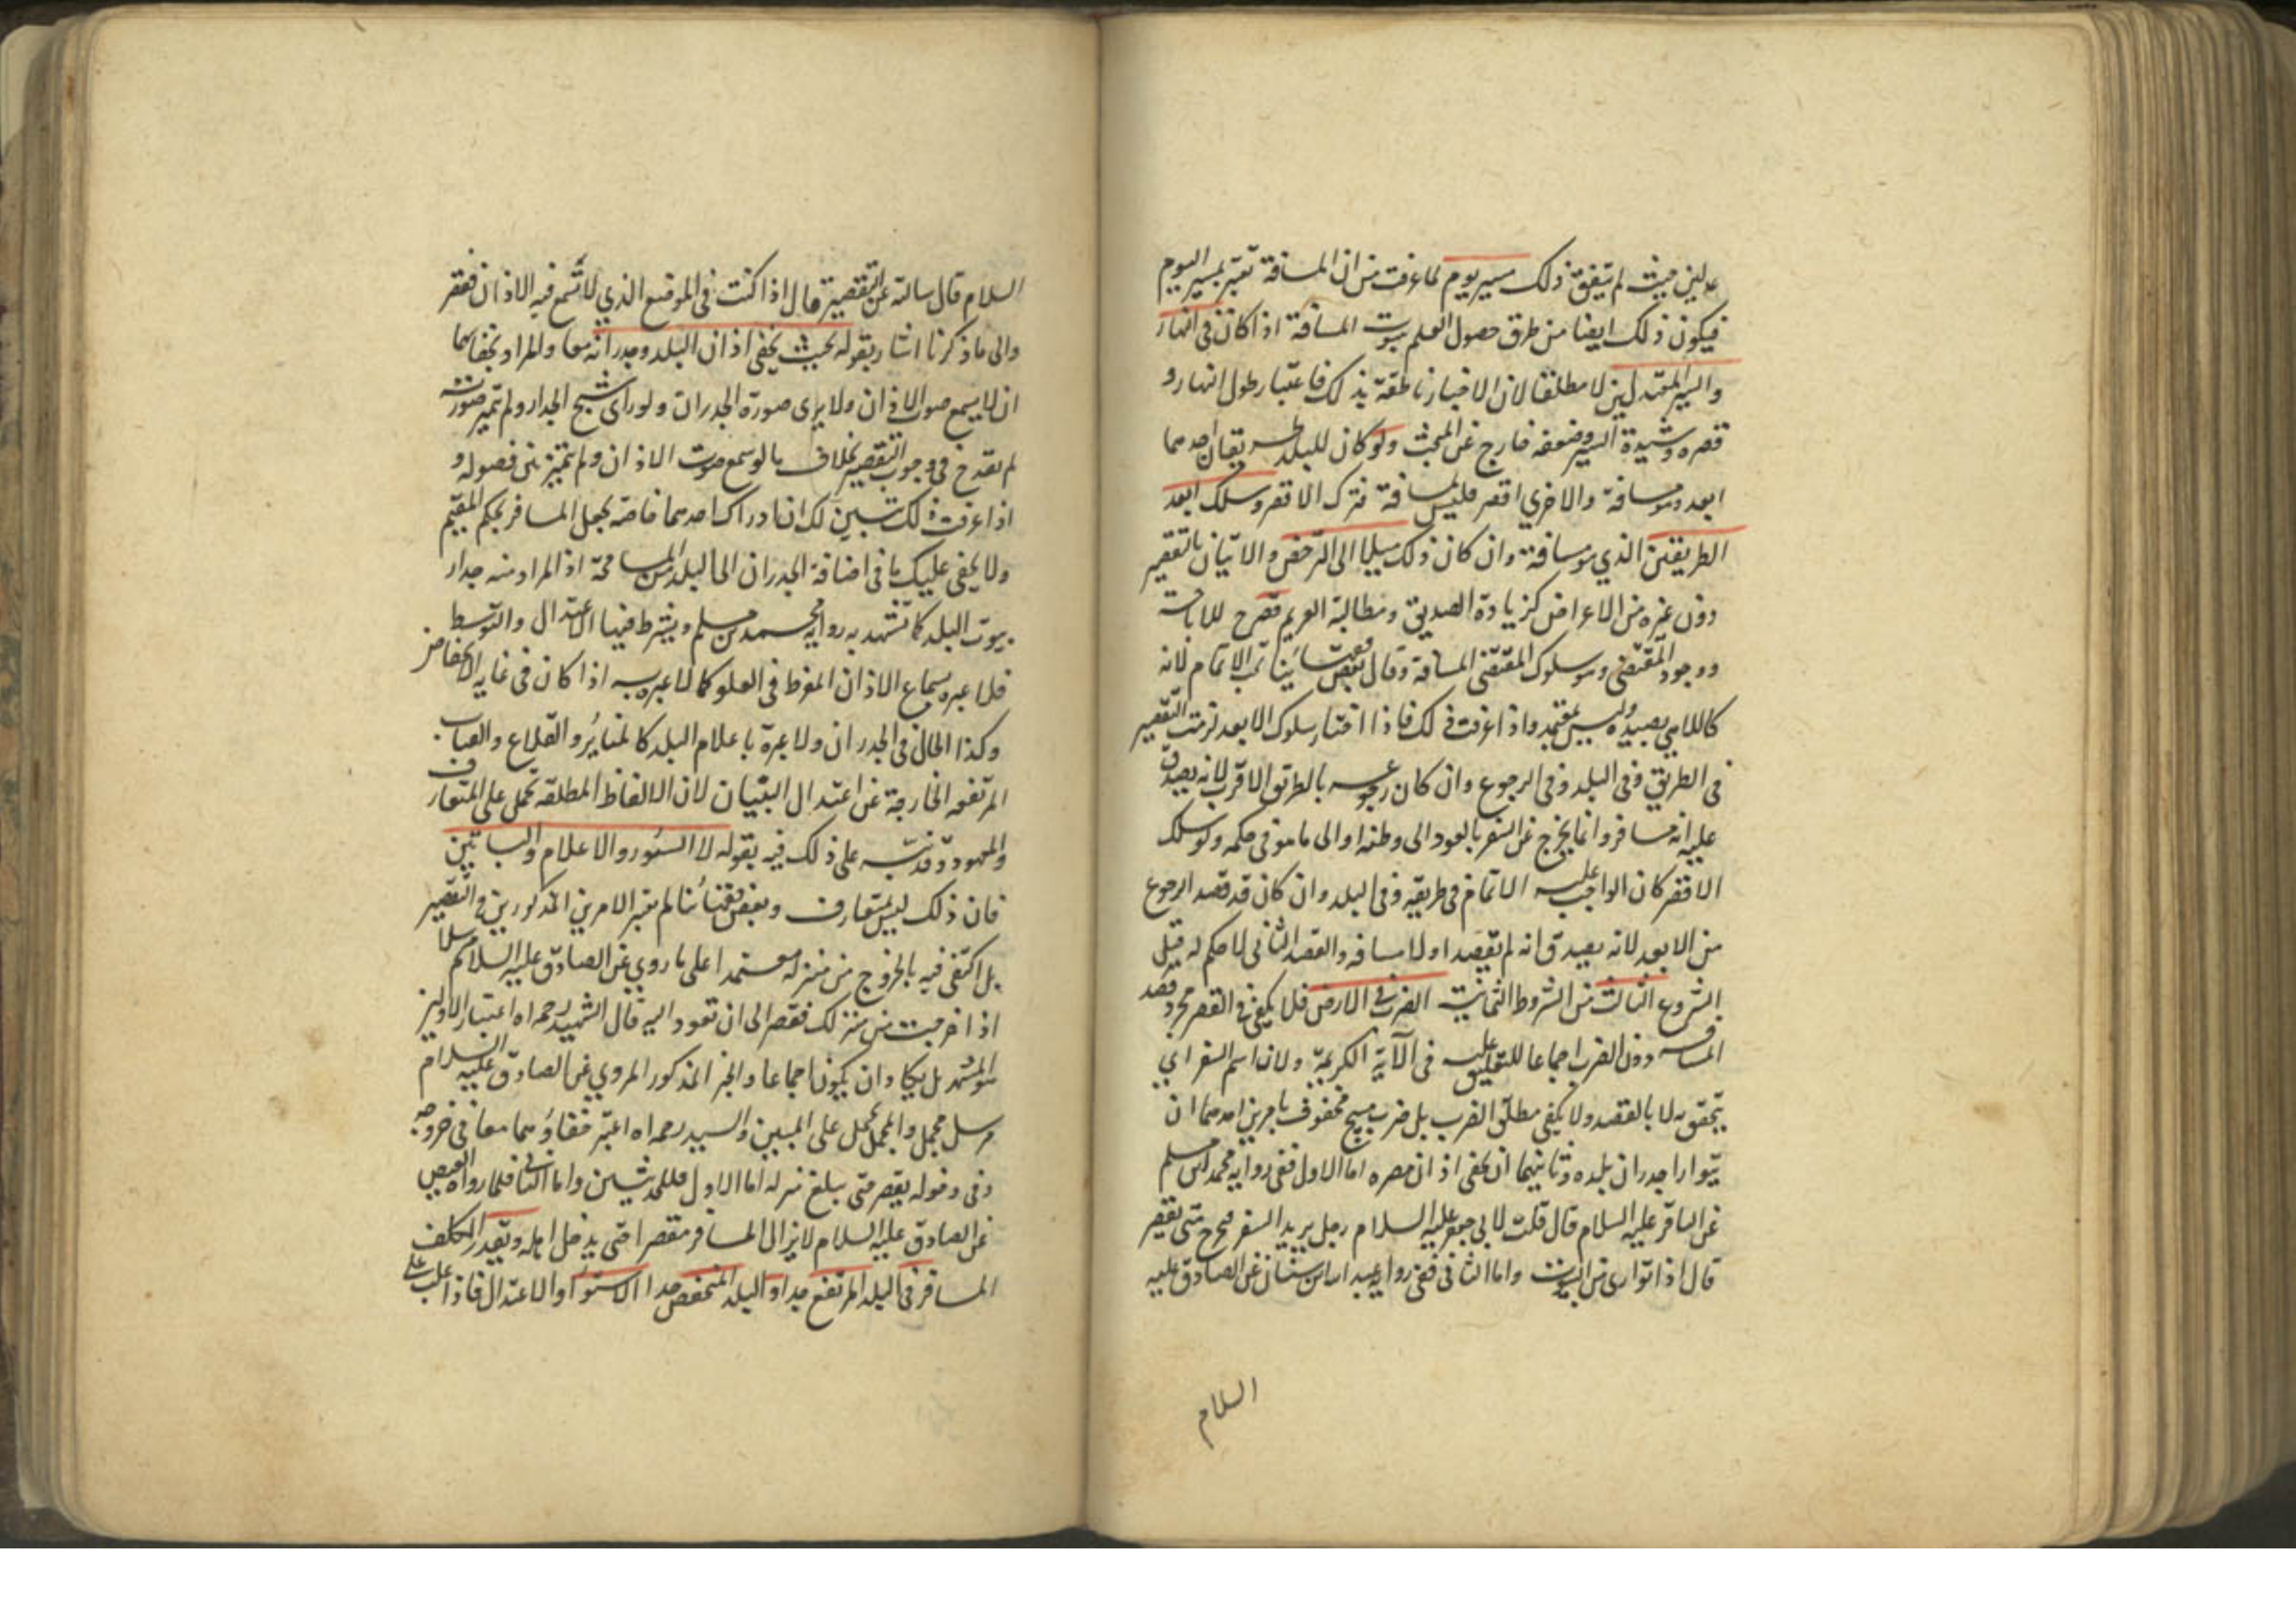 عدلين حيث لم يتفق ذلك مسير يوم لما عرفت من ان المسافة تعتبر بمسير اليوم
فيكون ذلك ايضا من طرق حصول العلم بثبوت المسافة اذا كان في النهار
والسير المعتدلين لا مطلقا لان الاخبار ناطقة بذلك فاعتبار طول النهار و
قصره وشدة السير وضعفه خارج عن المبحث ولو كان للبلد طريقان احدهما
ابعد وهو مسافة والاخرى اقصر فليس بمسافة فترك الاقصر وسلك ابعد
الطريقين الذي هو مسافة وان كان ذلك ميلا الى الترخص والاتيان بالتقصير
دون غيره من الاعراض كزيادة الصديق ومطالبة الغريم قصر للاباحة
ووجود المقتضي وهو سلوك المقتضي المسافة وقال بعض مشايخنا يجب الاتمام لانه
كاللاهي بصيده وليس بمعتمد واذا عرفت ذلك فاذا اختار سلوك الابعد لزمت التقصير
في الطريق وفي البلد وفي الرجوع وان كان رجوعه بالطريق الاقرب لانه يصدق
عليه انه مسافر وانما يخرج عن السفر بالعود الى وطنه او الى ما هو في حكمه ولو سلك
الاقصر كان الواجب عليه الاتمام في طريقه وفي البلد وان كان قد قصد الرجوع
من الابعد لانه يصدق انه لم يقصد اولا مسافه والقصد الثاني لا حكم له قبل
الشروع الثالث من الشروط الثمانية الضرب في الارض فلا يكفي في القصر مجرد قصد
المسافه دون الضرب اجماعا للتعليق عليه في الآية الكريمة ولان اسم السفر اي
يتحقق به لا بالقصد ولا يكفي مطلق الضرب بل ضرب مبيح محفوف بامرين احدهما ان
يتوارا جدران بلده وثانيهما ان يخفى اذان مصره اما الاول ففي رواية محمد بن مسلم
عن الباقر عليه السلام قال قلت لابي جعفر عليه السلام رجل يريد السفر فيخرج متى يقصر
قال اذا توارى من البيوت واما الثاني ففي رواية عبد الله بن سنان عن الصادق عليه
السلام
السلام قال سالته عن التقصير قال اذا كنت في الموضع الذي لا تسمع فيه الاذان فقصر
والى ما ذكرنا اشار بقوله بحيث يخفى اذان البلد وجدرانه معا والمراد بخفائهما
ان لا يسمع صوت الاذان ولا يرى صورة الجدران ولو راى شبح الجدار ولم تتميز صورته
لم يقدح في وجوب التقصير بخلاف ما لو سمع صوت الاذان ولم تتميز بين فصوله و
اذا عرفت ذلك تبين لك ان ادراك احدهما خاصة يجعل المسافر بحكم المقيم
ولا يخفى عليك ما في اضافة الجدران الى البلد من المسامحة اذ المراد منه جدار
بيوت البلد كما تشهد به رواية محمد بن مسلم ويشترط فيها الاعتدال والتوسط
فلا عبرة بسماع الاذان المفرط في العلو كما لا عبرة به اذا كان في غاية الانخفاض
وكذا الحال في الجدران ولا عبرة باعلام البلد كالمناير والقلاع والقباب
المرتفعه الخارجة عن اعتدال البنيان لان الالفاظ المطلقه تحمل على المتعارف
والمعهود وقد نبه على ذلك فيه بقوله لا السور والاعلام والبساتين
فان ذلك ليس بمتعارف وبعض فقهائنا لم يعتبر الامرين المذكورين في التقصير
بل اكتفى فيه بالخروج من منزله معتمدا على ما روي عن الصادق عليه السلام مرسلا
اذا خرجت من منزلك فقصر الى ان تعود اليه قال الشهيد رحمه الله اعتبار الاولين
هو المشهور بل يكاد ان يكون اجماعا والخبر المذكور المروي عن الصادق عليه السلام
مرسل مجمل والمجمل يحمل على المبين والسيد رحمه الله اعتبر خفاؤهما معا في خروجه
وفي دخوله يقصر حتى يبلغ منزله اما الاول فللحديثين واما الثاني فلما رواه العيص
عن الصادق عليه السلام لا يزال المسافر مقصرا حتى يدخل اهله ويقدر المكلف
المسافر في البلد المرتفع جدا والبلد المنخفض جدا الاستواء والاعتدال فاذا غلب على